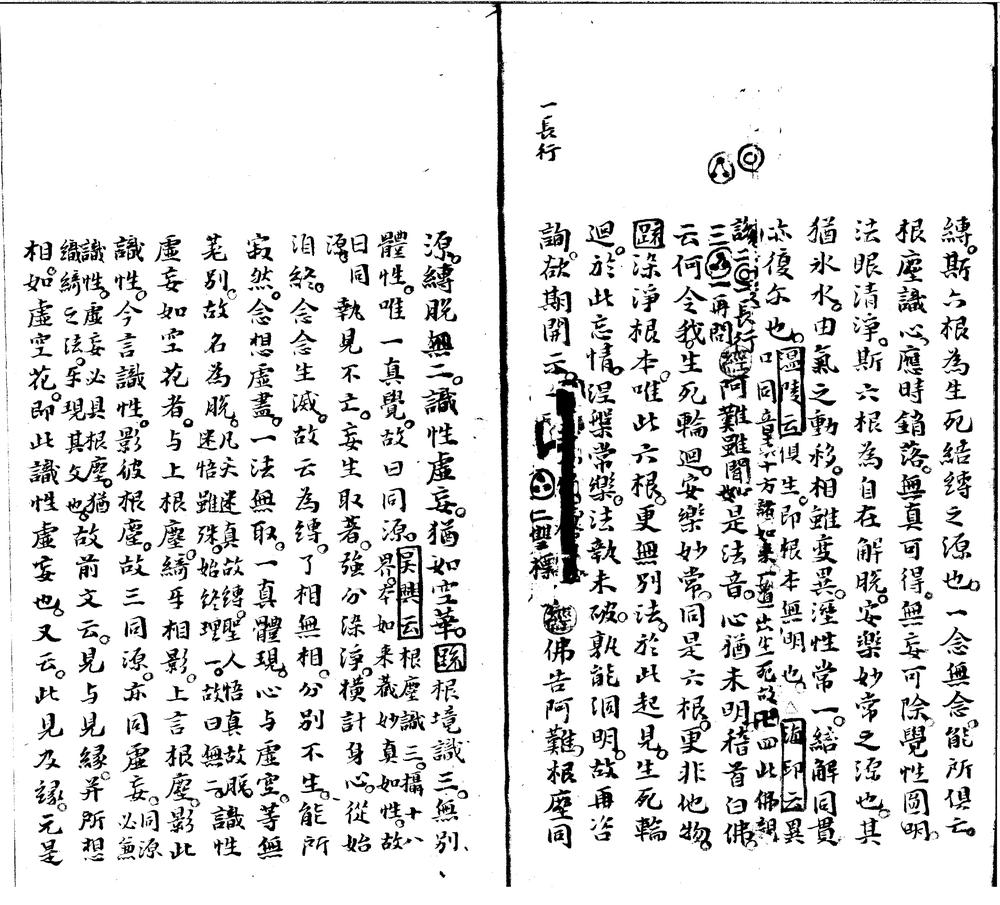 縛。斯六根為生死結縛之源也。一念無念。能所俱亡。
根塵識心。應時銷落。無真可得。無妄可除。覺性圓明。
法眼清淨。斯六根為自在解脫。安樂妙常之源也。其
猶氷水。由氣之動移。相雖變異。溼性常一。結解同貫。
亦復尔也。溫陵云俱生。即根本無明也。海印云異
口同音。十方諸如來。生死故。四此佛
長行 經阿難雖聞如是法音。心猶未明。稽首白佛。
三 一再問
云何令我。生死輪迴。安樂妙常。同是六根。更非他物。
疏染淨根本。唯此六根。更無別法。於此起見。生死輪
迴。於此忘情。涅槃常樂。法執未破。孰能洞明。故再咨
詢。欲期開示。 經佛告阿難。根塵同
一長行
源。縛脫無二。識性虛妄。猶如空華。疏根境識三。無別
體性。唯一真覺。故曰同源。吳興云根塵識三。攝十八
界。本如来藏妙真如性。故
曰同源。執見不亡。妄生取著。強分染淨。橫計身心。從始
洎終。念念生滅。故云為縛。了相無相。分別不生。能所
寂然。念想虛盡。一法無取。一真體現。心与虛空。等無
差別。故名為脫。凡夫迷真故縛。聖人悟真故脫。
迷悟雖殊。始終理一。故曰無二。識性
虛妄如空花者。与上根塵。綺互相影。上言根塵。影此
識性。今言識性。影彼根塵。故三同源。亦同虛妄。同源
必兼
識性。虛妄必具根塵。猶
織綺之法。互現其文也。故前文云。見与見緣。并所想
相。如虛空花。即此識性虛妄也。又云。此見及緣。元是